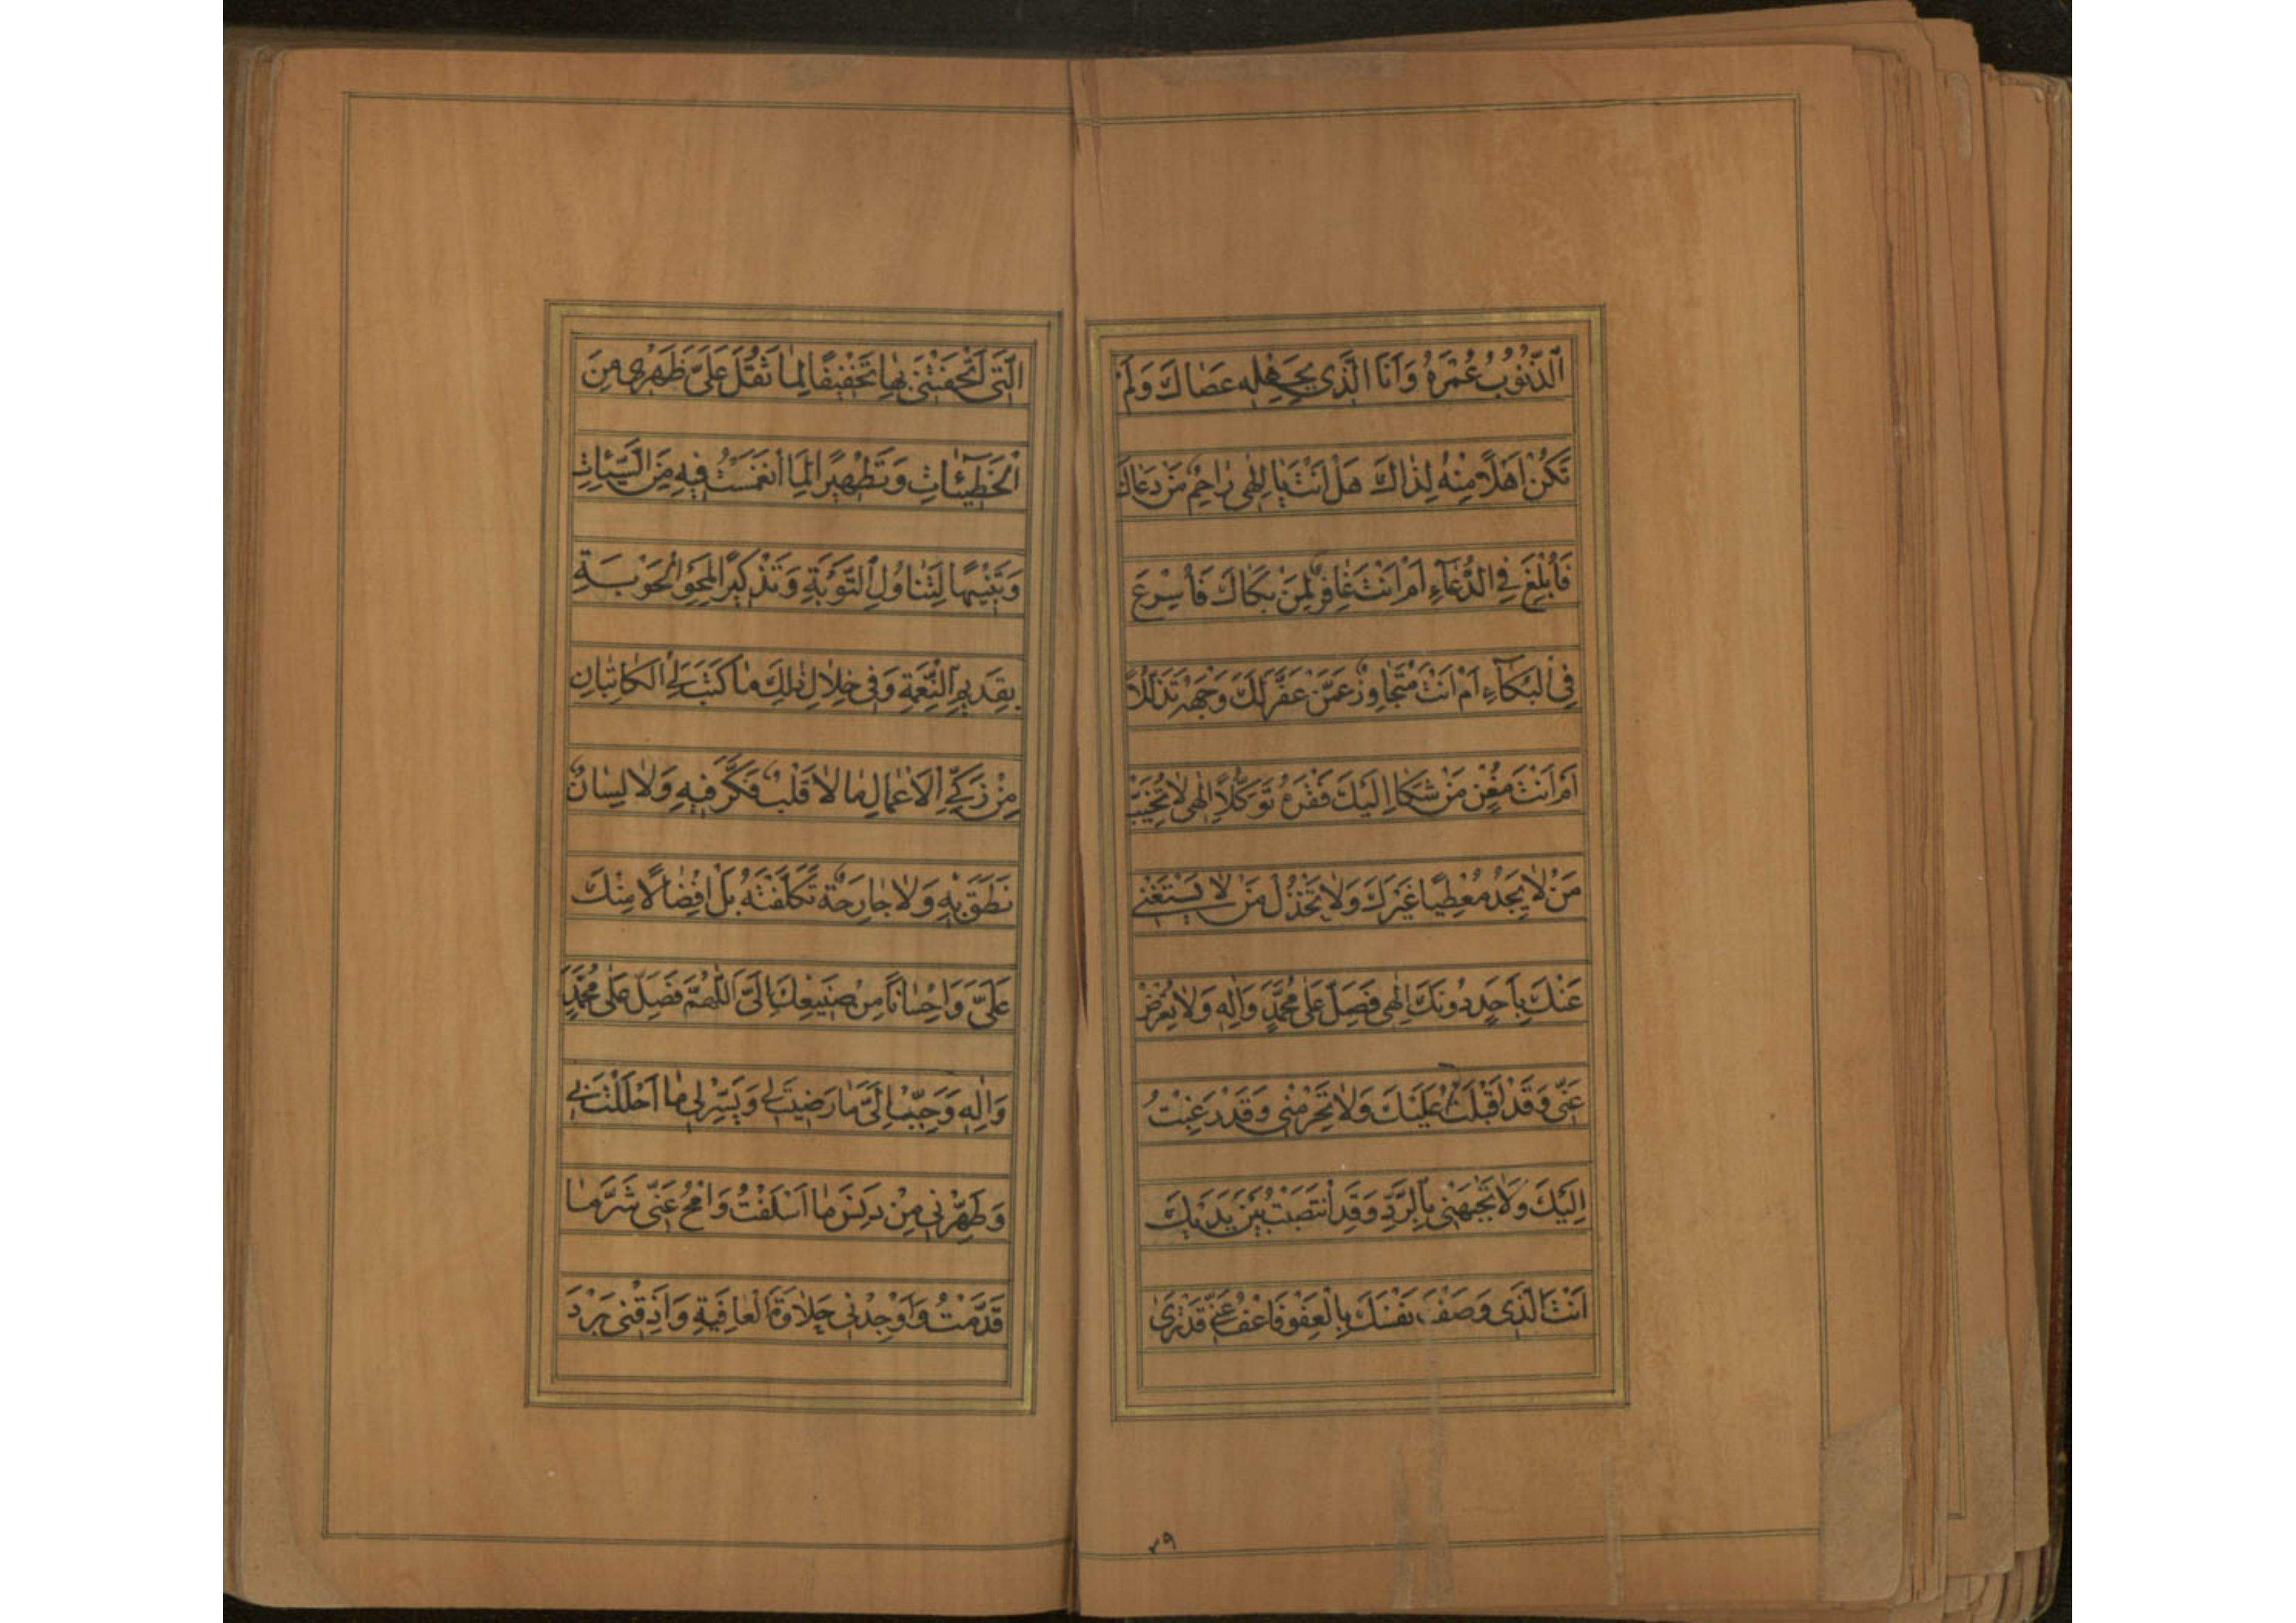 اَلذُّنُوبُ عُمْرَهُ وَاَنَا الَّذِي بِجَهْلِهِ عَصَاكَ وَلَمْ
تَكُنْ اَهْلًا مِنْهُ لِذَاكَ هَلْ اَنْتَ يَا اِلٰهِي رَاحِمٌ مَنْ دَعَاكَ
فَاُبْلِغَ فِي الدُّعَاءِ اَمْ اَنْتَ غَافِرٌ لِمَنْ بَكَاكَ فَاُسْرِعَ
فِي الْبُكَاءِ اَمْ اَنْتَ مُتَجَاوِزٌ عَمَّنْ عَفَّرَ لَكَ وَجْهَهُ تَذَلُّلًا
اَمْ اَنْتَ مُغْنٍ مَنْ شَكَا اِلَيْكَ فَقْرَهُ تَوَكُّلًا اِلٰهِي لَا تُخَيِّبْ
مَنْ لَا يَجِدُ مُعْطِيًا غَيْرَكَ وَلَا تَخْذُلْ مَنْ لَا يَسْتَغْنِي
عَنْكَ بِاَحَدٍ دُونَكَ اِلٰهِي فَصَلِّ عَلٰى مُحَمَّدٍ وَاٰلِهِ وَلَا تُعْرِضْ
عَنِّي وَقَدْ اَقْبَلْتُ عَلَيْكَ وَلَا تَحْرِمْنِي وَقَدْ رَغِبْتُ
اِلَيْكَ وَلَا تَجْبَهْنِي بِالرَّدِّ وَقَدِ انْتَصَبْتُ بَيْنَ يَدَيْكَ
اَنْتَ الَّذِي وَصَفْتَ نَفْسَكَ بِالْعَفْوِ فَاعْفُ عَنِّي قَدْ تَرٰى
٣٩
الَّتِي اَتْحَفْتَنِي بِهَا تَخْفِيفًا لِمَا ثَقُلَ عَلَيَّ ظَهْرِي مِنَ
الْخَطِيئَاتِ وَتَطْهِيرًا لِمَا انْغَمَسْتُ فِيهِ مِنَ السَّيِّئَاتِ
وَتَنْبِيهًا لِتَنَاوُلِ التَّوْبَةِ وَتَذْكِيرًا لِمَحْوِ الْحَوْبَةِ
بِقَدِيمِ النِّعْمَةِ وَفِي خِلَالِ ذٰلِكَ مَا كَتَبَ لِيَ الْكَاتِبَانِ
مِنْ زَكِيِّ الْاَعْمَالِ مَا لَا قَلْبٌ فَكَّرَ فِيهِ وَلَا لِسَانٌ
نَطَقَ بِهِ وَلَا جَارِحَةٌ تَكَلَّفَتْهُ بَلْ اِفْضَالًا مِنْكَ
عَلَيَّ وَاِحْسَانًا مِنْ صَنِيعِكَ اِلَيَّ اَللّٰهُمَّ فَصَلِّ عَلٰى مُحَمَّدٍ
وَاٰلِهِ وَحَبِّبْ اِلَيَّ مَا رَضِيتَ لِي وَيَسِّرْ لِي مَا اَحْلَلْتَ بِي
وَطَهِّرْنِي مِنْ دَنَسِ مَا اَسْلَفْتُ وَامْحُ عَنِّي شَرَّ مَا
قَدَّمْتُ وَاَوْجِدْنِي حَلَاوَةَ الْعَافِيَةِ وَاَذِقْنِي بَرْدَ